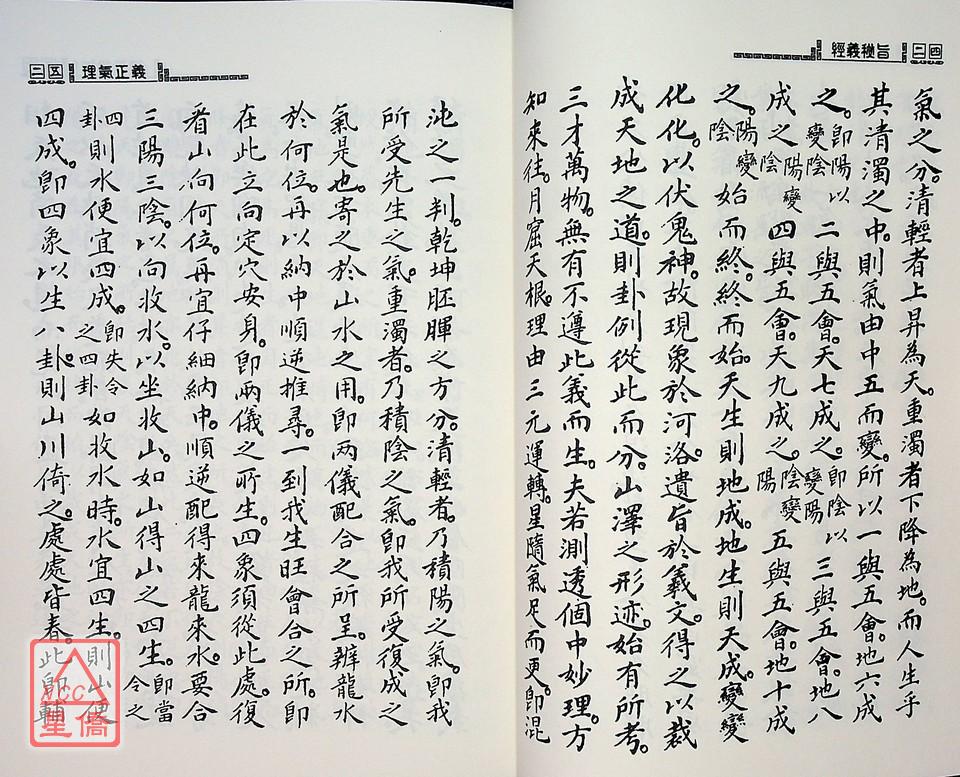 二四 經義秘旨
氣之分。清輕者上昇為天。重濁者下降為地。而人生乎
其清濁之中。則氣由中五而變。所以一與五會。地六成
之。即陽以變陰 二與五會。天七成之。即陰以變陽 三與五會。地八
成之陽變陰 四與五會。天九成之。陰變陽 五與五會。地十成
之。陽變陰 始而終。終而始。天生則地成。地生則天成。變變
化化。以伏鬼神。故現象於河洛。遺旨於羲文。得之以裁
成天地之道。則卦例從此而分。山澤之形迹。始有所考。
三才萬物。無有不遵此義而生。夫若測透個中妙理。方
知來往。月窟天根。理由三元運轉。星隨氣足而更。即混
二五 理氣正義
沌之一判。乾坤胚腪之方分。清輕者。乃積陽之氣。即我
所受先生之氣。重濁者。乃積陰之氣。即我所受復成之
氣是也。寄之於山水之用。即兩儀配合之所呈。辨龍水
於何位。再以納中順逆推尋。一到我生旺會合之所。即
在此立向定穴安身。即兩儀之所生。四象須從此處。復
看山向何位。再宜仔細納中。順逆配得來龍來水。要合
三陽三陰。以向收水。以坐收山。如山得山之四生。即當令之
四卦 則水便宜四成。即失令之四卦 如收水時。水宜四生。則山便
四成。即四象以生八卦。則山川倚之。處處皆春。此即輔
NCC
星僑